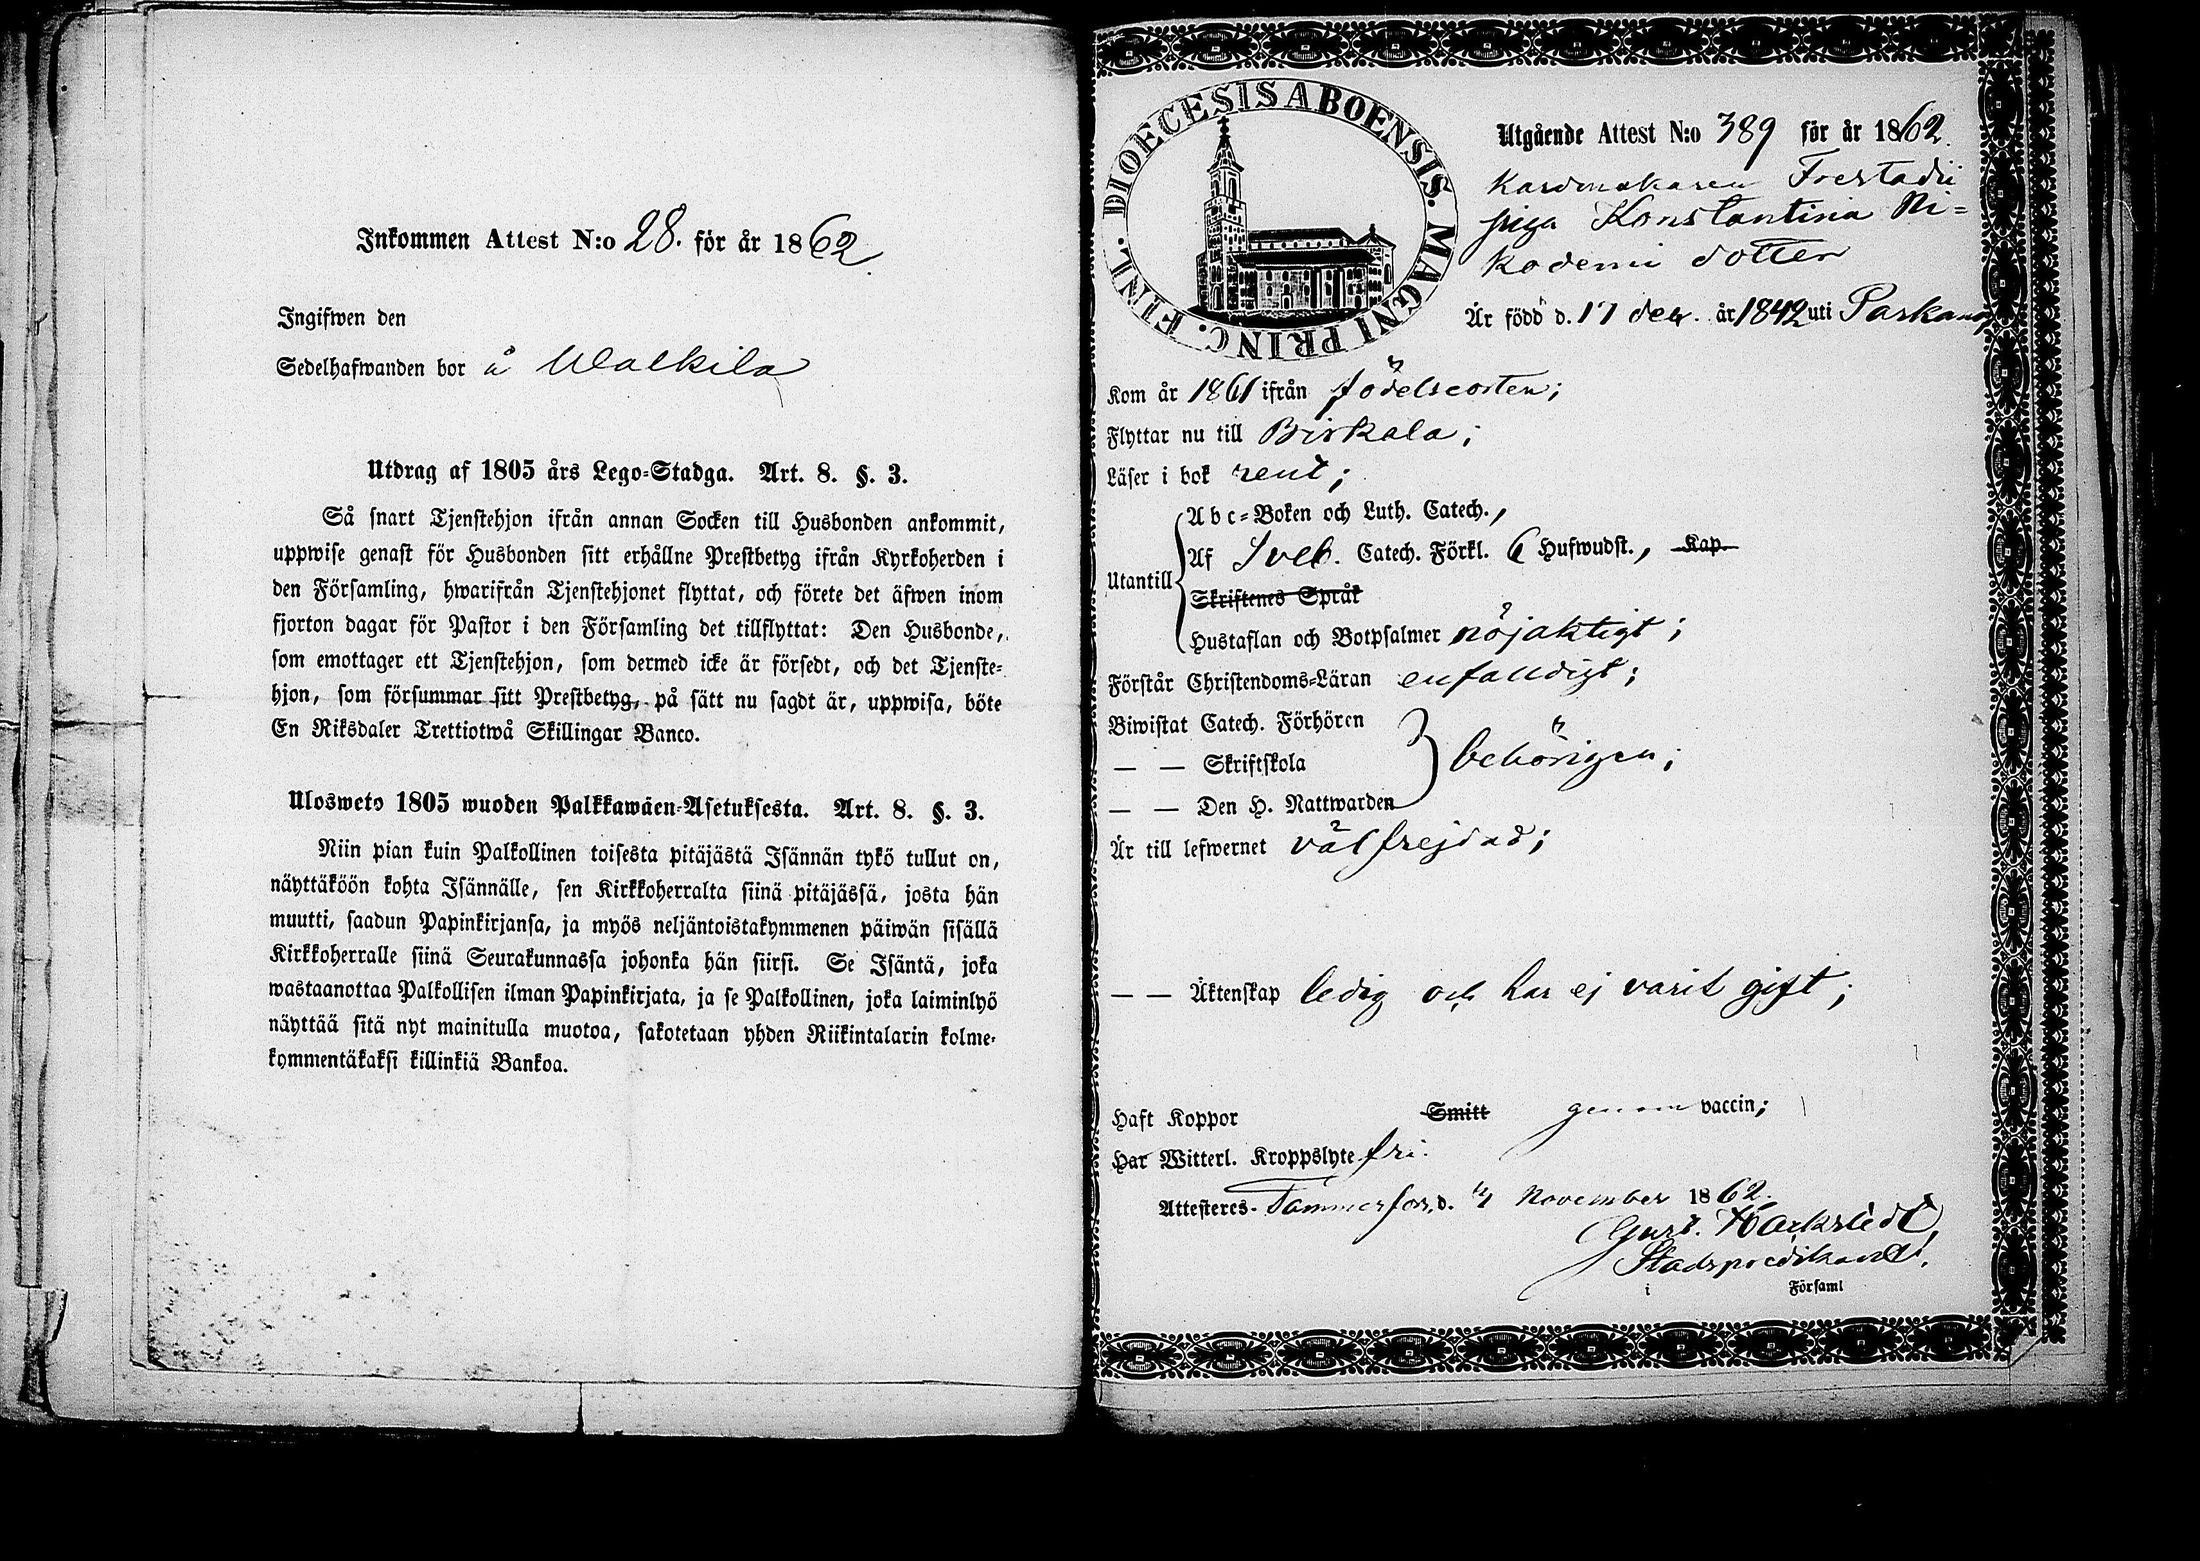 Inkommen Attest N:o 28. för år 1862.
Ingifwen den
Sedelhafwanden bor å Walkila
Utdrag af 1805 års Lego-Stadga. Art. 8. §. 3.
Så snart Tjenstehjon ifrån annan Socken till Husbonden ankommit,
uppwise genast för Husbonden sitt erhållne Prestbetyg ifrån Kyrkoherden i
den Församling, hwarifrån Tjenstehjonet flyttat, och förete det äfwen inom
fjorton dagar för Pastor i den Församling det tillflyttat: Den Husbonde,
som emottager ett Tjenstehjon, som dermed icke är försedt, och det Tjenste-
hjon, som försummar sitt Prestbetyg, på sätt nu sagdt är, uppwisa, böte
En Riksdaler Trettiotwå Skillingar Banco.
Ulosweto 1805 wuoden Palkkawäen-Asetuksesta. Art. 8. §. 3.
Niin pian kuin Palkollinen toisesta pitäjästä Isännän tykö tullut on,
näyttäköön kohta Isännälle, sen Kirkkoherralta siinä pitäjässä, josta hän
muutti, saadun Papinkirjansa, ja myös neljäntoistakymmenen päiwän sisällä
Kirkkoherralle siinä Seurakunnassa johonka hän siirsi. Se Isäntä, joka
wastaanottaa Palkollisen ilman Papinkirjata, ja se Palkollinen, joka laiminlyö
näyttää sitä nyt mainitulla muotoa, sakotetaan yhden Riikintalarin kolme-
kymmentäkaksi killinkiä Bankoa.
DIOECESIS ABOENSIS. MAGNI PRINC. FINL.
Utgående Attest N:o 389 för år 1862.
Kardmakaren Frestadii
piga Konstantina Ni=
kodemi dotter
Är född d. 17 dec. år 1842 uti Parkano
Kom år 1861 ifrån födelseorten;
Flyttar nu till Birkala;
Läser i bok rent;
Abc-Boken och Luth. Catech.,
Af Sveb. Catech. Förkl. 6 Hufwudst., Kap
Utantill
Skriftenes Språk
Hustaflan och Botpsalmer nöjaktigt;
Förstår Christendoms-Läran enfaldigt;
Biwistat Catech. Förhören
— — Skriftskola behörigen;
— — Den H. Nattwarden
Är till lefwernet välfrejdad;
— — Äktenskap ledig och har ej varit gift;
Haft Koppor Smitt genom vaccin;
Har Witterl. Kroppslyte fri.
Attesteres. Tammerfors, d. November 1862.
Gust. Hackstedt,
Stadspredikant.
i Församl